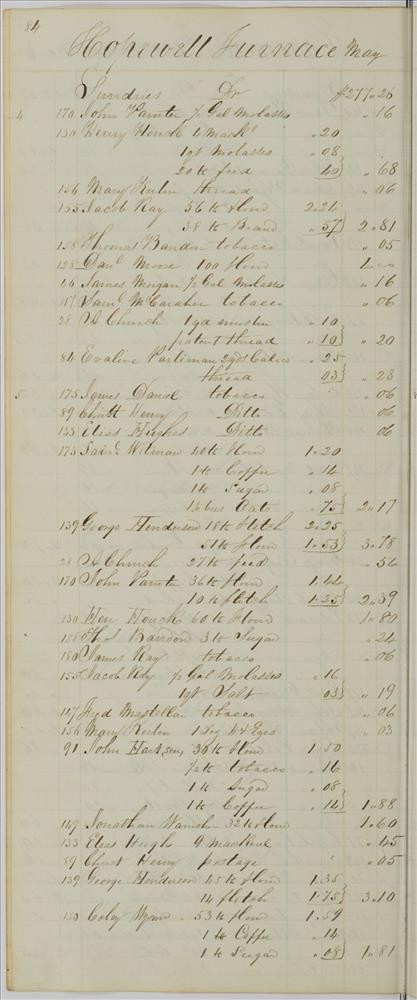 84
Hopewell Furnace May
Sundries Dr $277.26
4 170 John Painter ½ Gal Molasses " 16
130 Henry Houck 4 Mack¹ " 20
1 qt Molasses " 08
20 lb feed 40 " 68
156 Mary Kerlin thread " 06
155 Jacob Ray 56 lb flour 2.24
38 lb Brand " 57 2.81
158 Thomas Bandon tobacco " 05
128 Danl Moore 100 flour
46 James Morgan ½ Gal Molasses " 16
187 Saml McCaraher tobacco " 06
28 A Church 1 yd muslin " 10
patent thread " 10 " 20
84 Evaline Partiman 2 yds Calico " 25
thread 03 " 28
5 175 James Daniel tobacco " 06
89 Christ Henry Ditto 06
133 Elias Hughs Ditto 06
173 Witman 40 lb flour 1.20
1 lb Coffee " 14
1 lb Sugar " 08
1½ bus Oats " 75 2.17
139 George Henderson 18 lb flitch 2.25
51 lb flour 1.53 3.78
28 A Church 27 lb feed " 54
170 John Painter 36 lb flour 1.44
10 lb flitch 1.25 2.39
130 Hen Houck 60 lb flour 1.80
158 Thos Bandon 3 lb Sugar " 24
180 James Ray tobacco " 06
155 Jacob Ray ½ Gal Molasses " 16
1 qt Salt 03 " 19
117 Fred Mastellar tobacco " 06
156 Mary Kerlin 1 Doz H & Eyes " 03
91 John Harrison, 36 lb flour 1.50
½ lb tobacco " 16
1 lb Sugar " 08
1 lb Coffee " 14 1.88
149 Jonathan Wamsher 32 lb flour 1.60
133 Elias Hughs 9 mackerel " 45
89 Christ Henry postage " 05
139 George Henderson 45 lb flour 1.35
14 flitch 1.75 3.10
150 Coley Wynn 53 lb flour 1.59
1 lb Coffee " 14
1 lb Sugar " 08 1.81